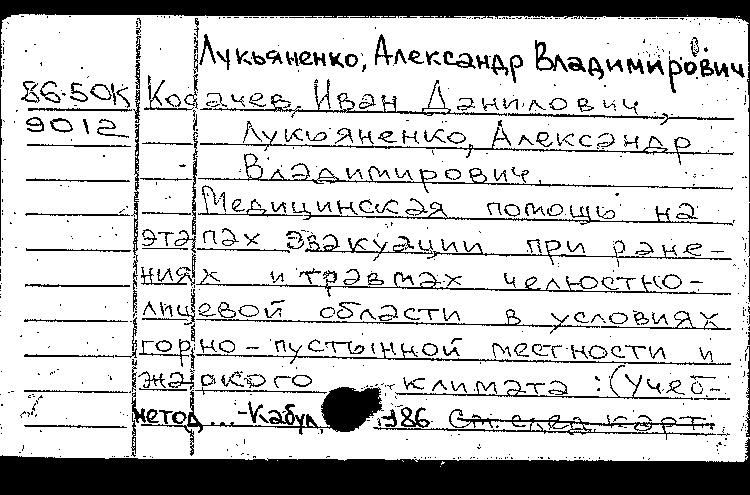 Лукьяненко, Александр Владимирович
86-50К Косачев, Иван Данилович,
9012 Лукьяненко, Александр
Владимирович.
Медицинская помощь на
этапах эвакуации при ране-
ниях и травмах челюстно-
лицевой области в условиях
горно-пустынной местности и
жаркого климата : (Учеб-
метод ... -Кабул, 1986 См. след. карт.